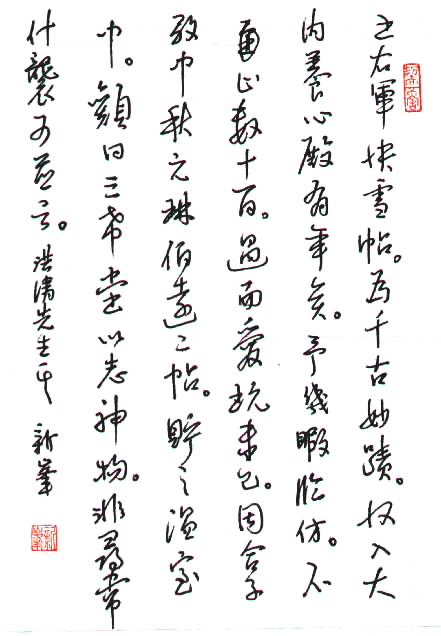 王右軍快雪帖。為千古妙蹟。收入大
內養心殿有年矣。予幾暇臨仿。不
止數十百。過而愛玩未已。因合子
敬中秋元琳伯遠二帖。貯之溫室
中。顏曰三希堂以志神物。非尋常
什襲可並云。洪濤先生正 新峯